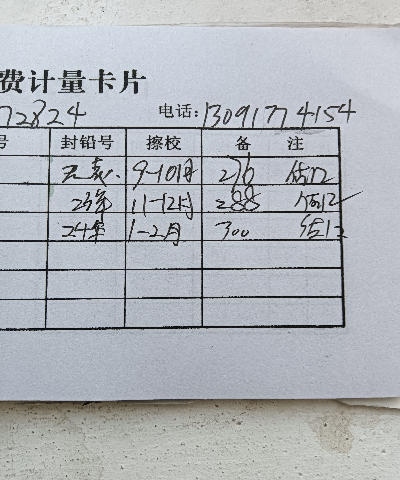 费计量卡片
72824 电话:13091774154
号 封铅号 擦校 备 注
无表 9-10月 276 估12
23年 11-12月 288 估12
24年 1-2月 300 估12